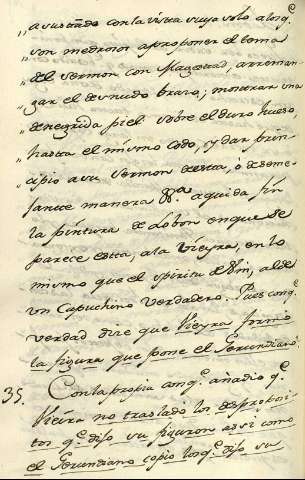 " asustado con la vista suya solo a los q.e
" son medrosos a proponer el toma
" del sermon con Magestad, arreman-
" gar el desnudo brazo; mostrar una
" denegrida piel sobre el duro hueso,
" hasta el mismo codo, y dar prin-
" cipio a su sermon de esta, ò de seme-
" jante manera &.a aquida fin
la pintura de Lobon en que se
parece esta, a la Vieyra, en lo
mismo que el spiritu de al de
un Capuchino verdadero. Pues con q.e
verdad dire que Vieyra formo
la figura que pone el Gerundiano.
35. Con la propia con q.e añadio q.e
Vieira no traslado los despropoi-
tos q.e dijo su figuron assi como
el Gerundiano copio los q.e dijo su